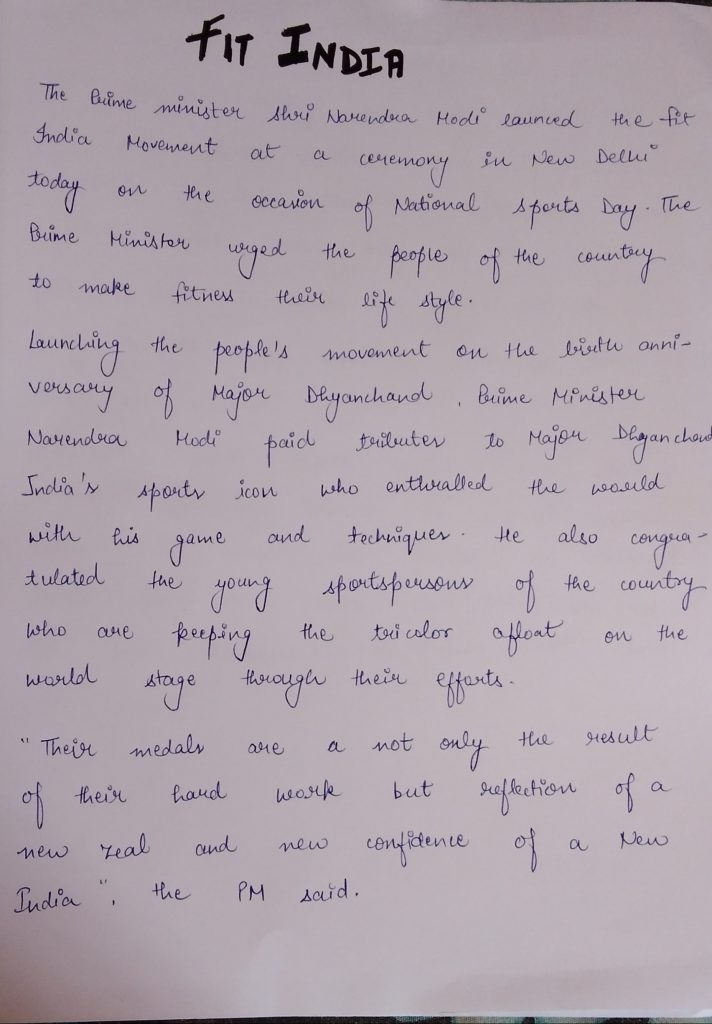 FIT INDIA
The Prime minister Shri Narendra Modi launced the fit
India Movement at a ceremony in New Delhi
today on the occasion of National sports Day. The
Prime Minister urged the people of the country
to make fitness their life style.
Launching the people's movement on the birth anni-
versary of Major Dhyanchand, Prime Minister
Narendra Modi paid tributes to Major Dhyanchand
India's sports icon who enthralled the world
with his game and techniques. He also congra-
tulated the young sportspersons of the country
who are keeping the tricolor afloat on the
world stage through their efforts.
"Their medals are a not only the result
of their hard work but reflection of a
new zeal and new confidence of a New
India", the PM said.